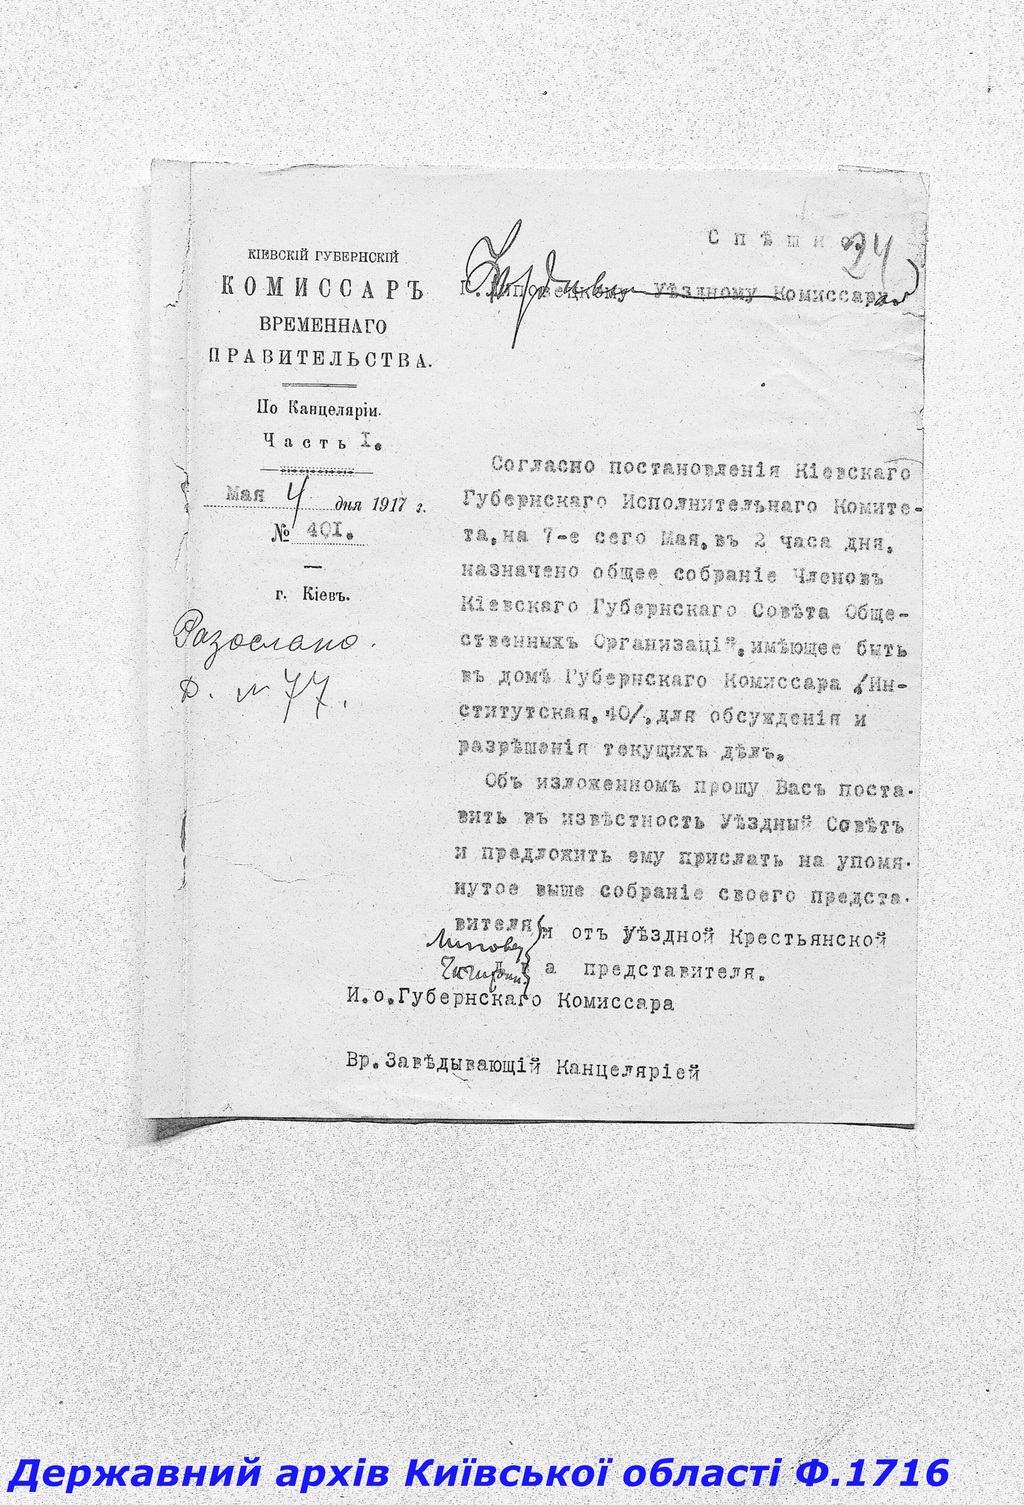 КІЕВСКІЙ ГУБЕРНСКІЙ
КОМИССАРЪ
ВРЕМЕННАГО
ПРАВИТЕЛЬСТВА.
По Канцеляріи.
Часть I.
Мая 4 дня 1917 г.
№ 401.
г. Кіевъ.
Разослано.
24
Г. Липовецкому Уѣздному Комиссару
Согласно постановленія Кіевскаго
Губернскаго Исполнительнаго Комите-
та, на 7-е сего Мая, въ 2 часа дня,
назначено общее собраніе Членовъ
Кіевскаго Губернскаго Совѣта Обще-
ственныхъ Организацій, имѣющее быть
въ домѣ Губернскаго Комиссара /Ин-
ститутская, 40/, для обсужденія и
разрѣшенія текущихъ дѣлъ.
Объ изложенномъ прошу Васъ поста-
вить въ извѣстность Уѣздный Совѣтъ
и предложить ему прислать на упомя-
нутое выше собраніе своего предста-
вителя и отъ Уѣздной Крестьянской
два представителя.
И.о.Губернскаго Комиссара
Вр.Завѣдывающій Канцеляріей
Державний архів Київської області Ф.1716